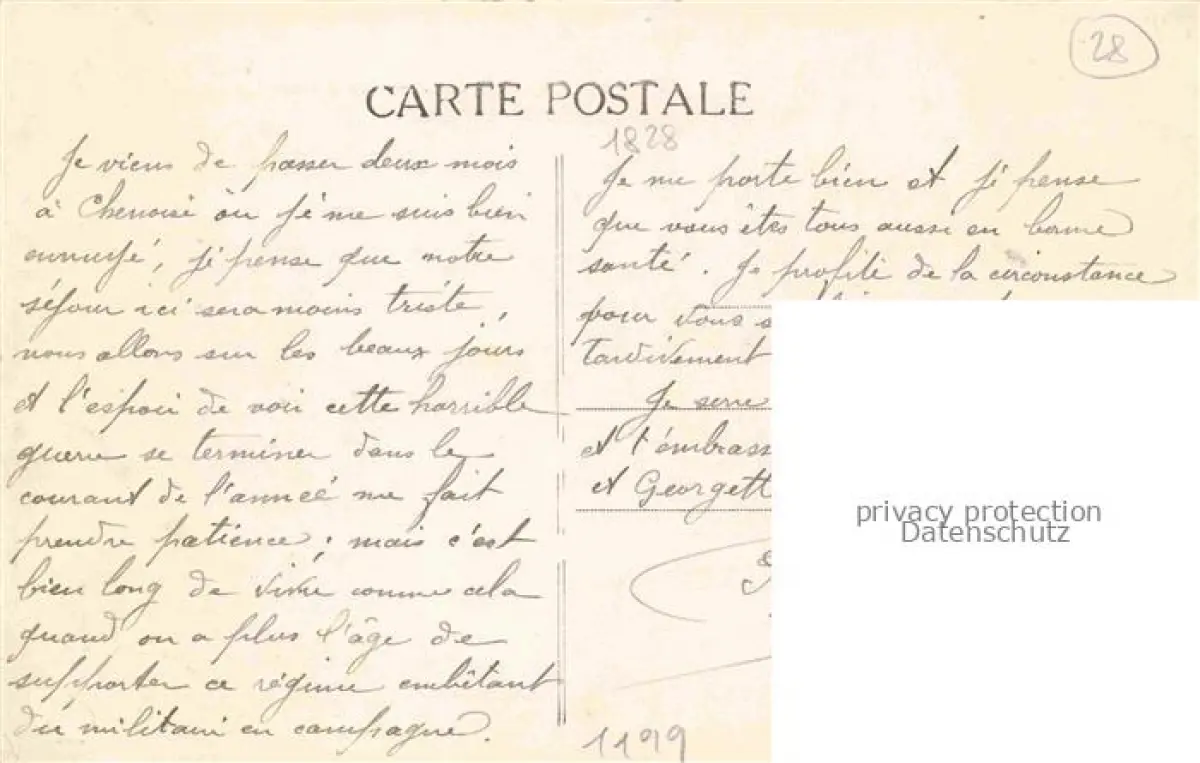 28
CARTE POSTALE
1828
Je viens de passer deux mois
à Chenoisé où je me suis bien
ennuyé, je pense que notre
séjour ici sera moins triste,
nous allons sur les beaux jours
et l'espoir de voir cette horrible
guerre se terminer dans le
courant de l'année me fait
prendre patience; mais c'est
bien long de vivre comme cela
quand on a plus l'âge de
supporter ce régime embêtant
du militaire en campagne.
Je me porte bien et je pense
que vous êtes tous aussi en bonne
santé. Je profite de la circonstance
pour vous s
tardivement
Je serre
et t'embrass
et Georgett
privacy protection
Datenschutz
1199